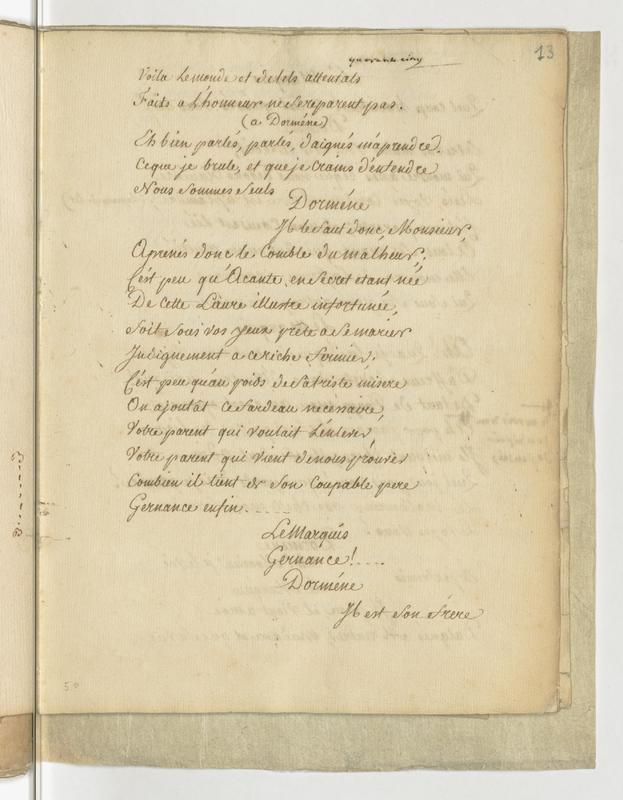 quarante cinq
13
Voila le monde et de tels attentats
Faits a L'honneur ne se reparent pas.
(a Dorméne)
Eh bien parlés, parlés, daignés m'aprendre.
Ce que je brule, et que je crains d'entendre
Nous Sommes Seuls
Dorméne
Il le faut donc, Monsieur,
Aprenés donc le Comble du malheur.
C'est peu qu'Acante, en Secret etant née
De cette Laure illustre infortunée,
Soit Sous vos yeux prête a Se marier
Indignement a ce riche fermier,
C'est peu qu'au poids de Sa triste misere
On ajoutât ce fardeau necessaire,
Votre parent qui voulait L'enlever,
Votre parent qui vient de nous prouver
Combien il tient de Son Coupable pere
Gernance enfin.....
Le Marquis
Gernance!....
Dorméne
Il est Son frere
50